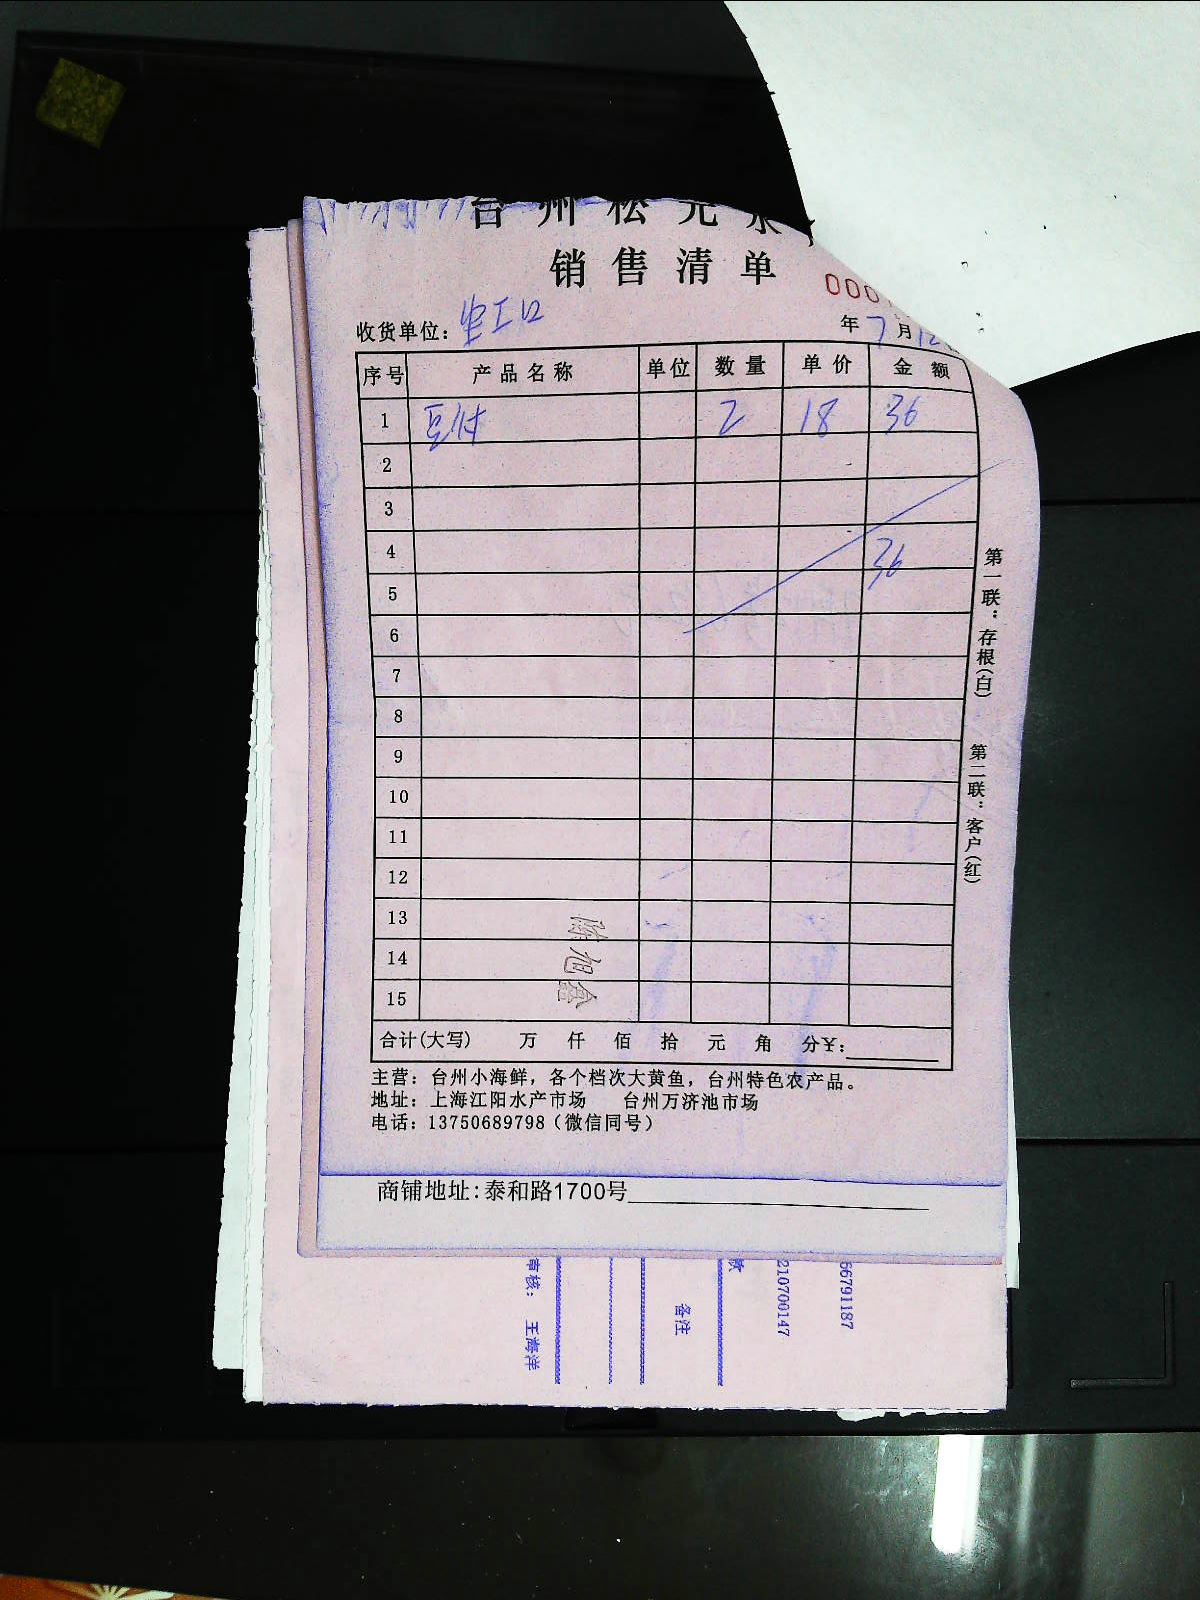 台州松元水
销售清单
000
收货单位：
年7月12
序号 产品名称 单位 数量 单价 金额
1 豆付 2 18 36
2
3
4 36
5
6
7
8
9
10
11
12
13
14
15
陈旭鑫
合计(大写) 万 仟 佰 拾 元 角 分¥:
主营：台州小海鲜，各个档次大黄鱼，台州特色农产品。
地址：上海江阳水产市场 台州万济池市场
电话：13750689798（微信同号）
第一联：存根(白)
第二联：客户(红)
商铺地址:泰和路1700号
审核： 王海洋
备注
款
210700147
66791187